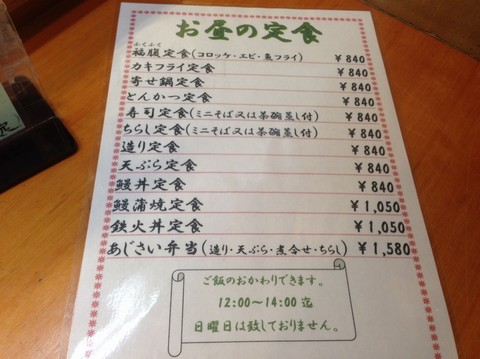 お昼の定食
ふくふく
福腹定食(コロッケ・エビ・魚フライ) ¥840
カキフライ定食 ¥840
寄せ鍋定食 ¥840
とんかつ定食 ¥840
寿司定食(ミニそば又は茶碗蒸し付) ¥840
ちらし定食(ミニそば又は茶碗蒸し付) ¥840
造り定食 ¥840
天ぷら定食 ¥840
鰻丼定食 ¥840
鰻蒲焼定食 ¥1,050
鉄火丼定食 ¥1,050
あじさい弁当(造り・天ぷら・煮合せ・ちらし) ¥1,580
ご飯のおかわりできます。
12:00～14:00 迄
日曜日は致しておりません。